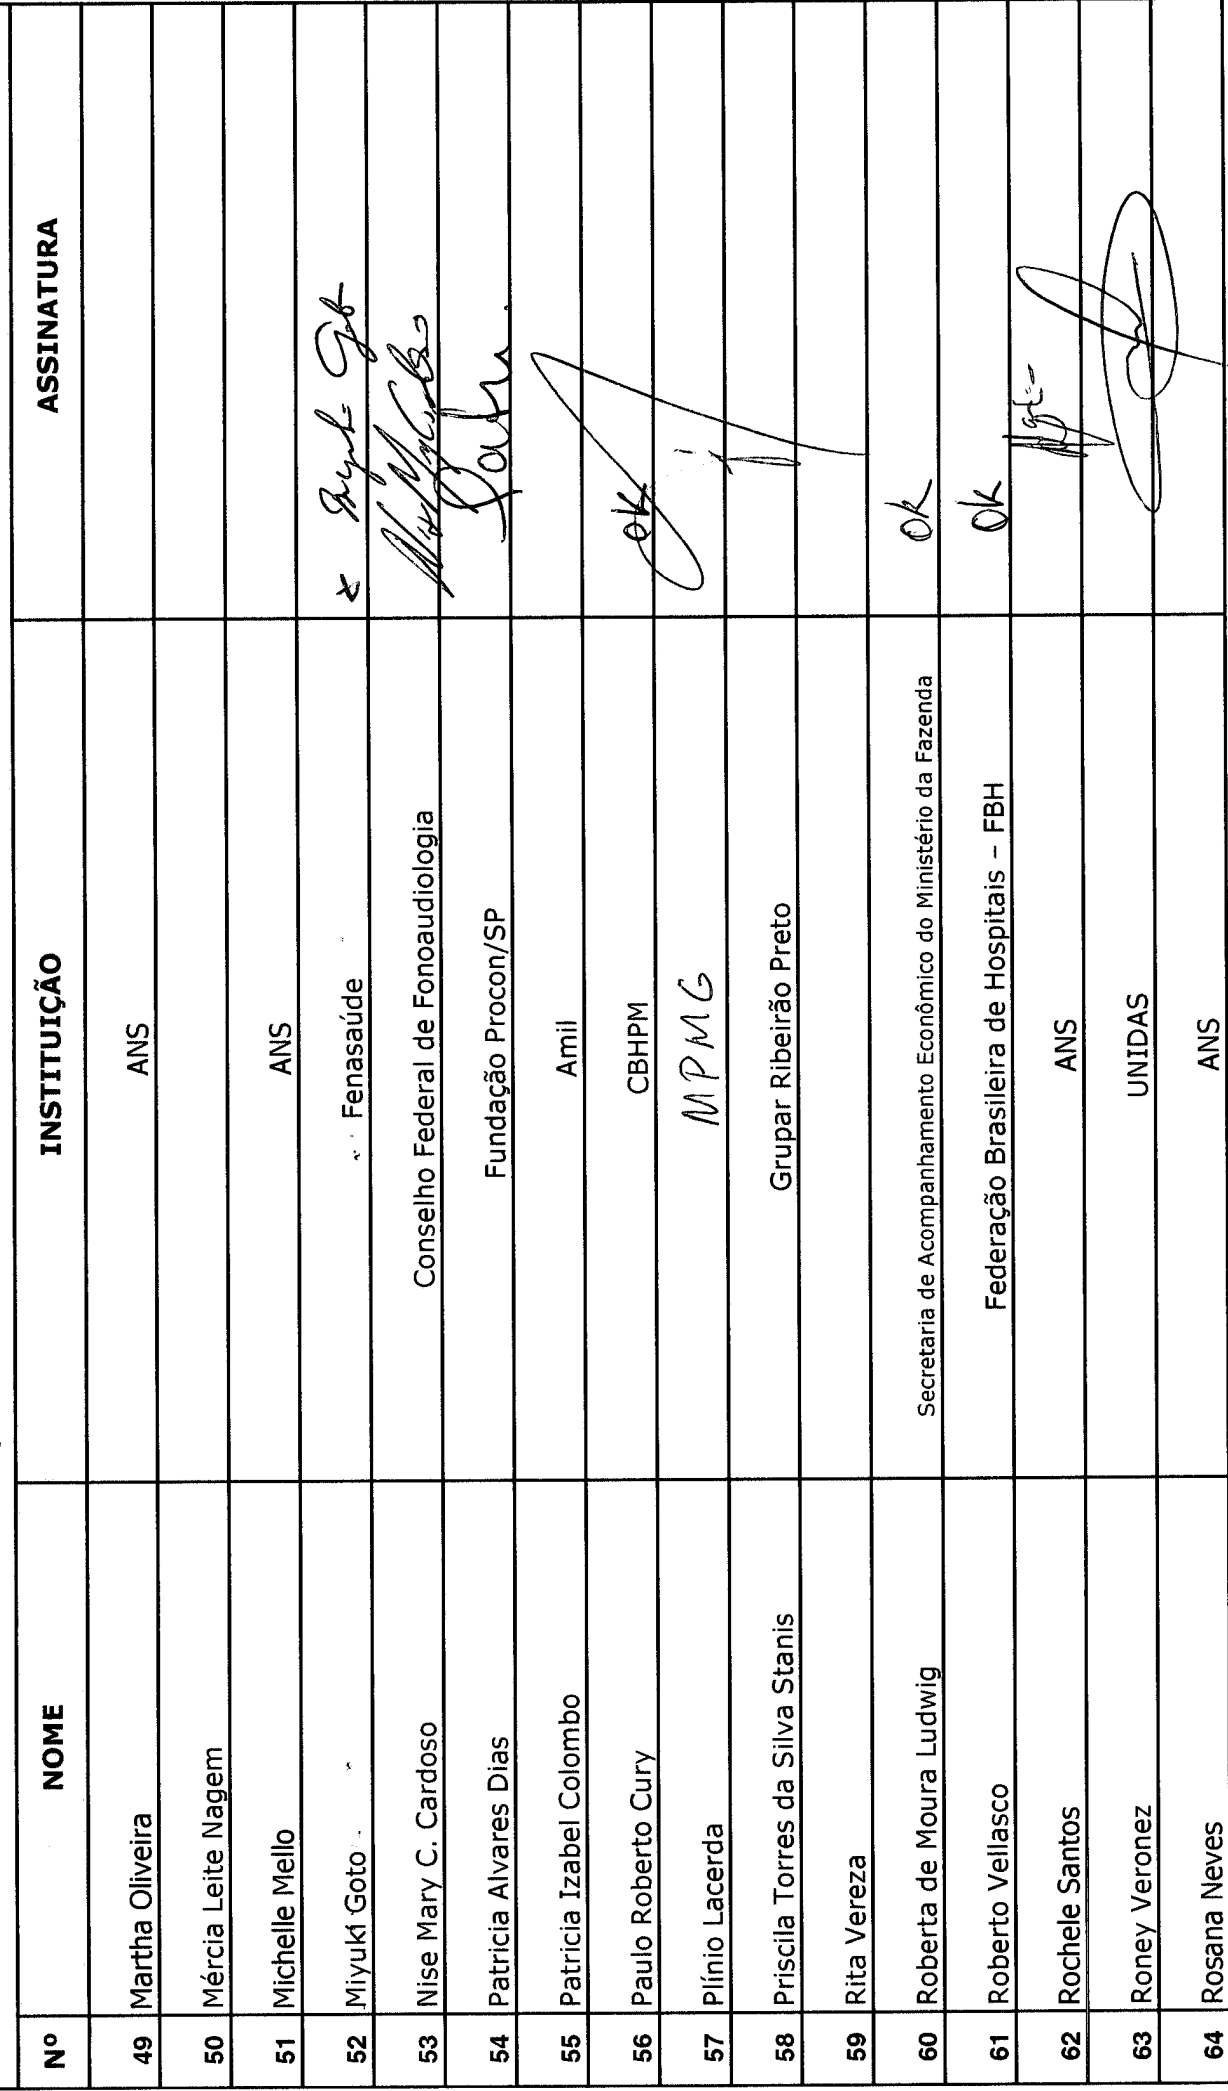 Nº NOME INSTITUIÇÃO ASSINATURA
49 Martha Oliveira ANS
50 Mércia Leite Nagem
51 Michelle Mello ANS
52 Miyuki Goto Fenasaúde x Miyuki Goto
53 Nise Mary C. Cardoso Conselho Federal de Fonoaudiologia
54 Patricia Alvares Dias Fundação Procon/SP
55 Patricia Izabel Colombo Amil
56 Paulo Roberto Cury CBHPM OK
57 Plínio Lacerda MPMG
58 Priscila Torres da Silva Stanis Grupar Ribeirão Preto
59 Rita Vereza
60 Roberta de Moura Ludwig Secretaria de Acompanhamento Econômico do Ministério da Fazenda OK
61 Roberto Vellasco Federação Brasileira de Hospitais – FBH OK
62 Rochele Santos ANS
63 Roney Veronez UNIDAS
64 Rosana Neves ANS